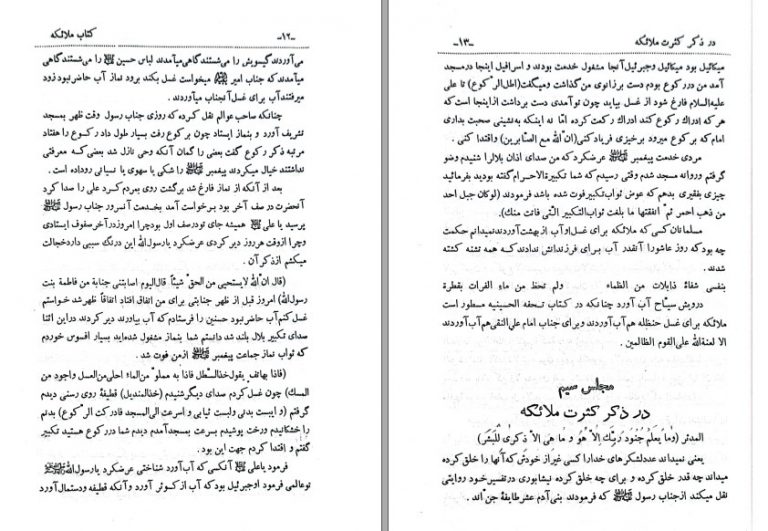 -۱۲- کتاب ملائکه
می‌آوردند گیسویش را می‌شستند گاهی میآمدند لباس حسین ﷺ را می‌شستند گاهی
میآمدند که جناب امیر ﷺ میخواست غسل بکند برود نماز آب حاضر نبود زود
میرفتند آب برای غسل آنجناب میآوردند.
چنانکه صاحب عوالم نقل کرده که روزی جناب رسول وقت ظهر بمسجد
تشریف آورد و بنماز ایستاد چون برکوع رفت بسیار طول داد رکوع را هفتاد
مرتبه ذکر رکوع گفت بعضی را گمان آنکه وحی نازل شد بعضی که معرفتی
نداشتند خیال میکردند پیغمبر ﷺ را شکی یا سهوی یا نسیانی روداده است.
بعد از آنکه از نماز فارغ شد برگشت روی بمردم کرد علی را صدا کرد
آنحضرت در صف آخر بود برخواست آمد بخدمت آنسرور جناب رسول
پرسید یا علی ﷺ همیشه جای تو در صف اول بود چرا امروز در آخر صفوف ایستادی
و چرا از وقت هر روز دیر کردی عرضکرد یا رسول الله این درنگ سببی دارد خجالت
میکشم از ذکر آن.
(قال ان الله لا یستحیی من الحق شیئاً قال الیوم اصابتنی جنابة من فاطمة بنت
رسول الله) امروز قبل از ظهر جنابتی برای من اتفاق افتاد اتفاقاً ظهر شد خواستم
غسل کنم آب حاضر نبود حسنین را فرستادم که آب بیاورند دیر کردند در این اثنا
صدای تکبیر بلال بلند شد دانستم شما بنماز مشغول شده‌اید بسیار افسوس خوردم
که ثواب نماز جماعت پیغمبر ﷺ از من فوت شد.
(فاذا بهاتف یقول خذ السطل فاذا به مملو من الماء احلی من العسل واجود من
المسك) چون غسل کردم صدای دیگر شنیدم (خذ المندیل) قطیفهٔ روی رسنی دیدم
گرفتم (و ایبست بدنی ولبست ثیابی و اسرعت الی المسجد فادرکت الرکوع) بدنم
را خشکانیدم و رخت پوشیدم بسرعت بمسجد آمدم دیدم شما در رکوع هستید تکبیر
گفتم و اقتدا کردم جهت این بود.
فرمود یا علی ﷺ آنکسی که آب آورد شناختی عرضکرد یا رسول الله ﷺ
تو عالمی فرمود او جبرئیل بود که آب از کوثر آورد و آنکه قطیفه و دستمال آورد
در ذکر کثرت ملائکه -۱۳-
میکائیل بود میکائیل و جبرئیل آنجا مشغول خدمت بودند و اسرافیل اینجا در مسجد
آمد من در رکوع بودم دست برزانوی من گذاشت و میگفت (اطل الرکوع) تا علی
علیه السلام فارغ شود از غسل بیاید چون تو آمدی دست برداشت از اینجا است که
هر که ادراك رکوع کند ادراك رکعت کرده امّا نه اینکه به‌نشینی صحبت بداری
امام که برکوع میرود برخیزی فریاد کنی (ان الله مع الصابرین) واقتدا کنی.
مردی خدمت پیغمبر ﷺ عرضکرد که من صدای اذان بلال را شنیدم وضو
گرفتم و روانه مسجد شدم وقتی رسیدم که شما تکبیرة الاحرام گفته بودید بفرمائید
چیزی بفقیری بدهم که عوض ثواب تکبیر فوت شده باشد فرمودند (لو کان جبل احد
من ذهب احمر ثم انفقتها ما بلغت ثواب التکبیر التی فاتت منك).
مسلمانان کسی که ملائکه برای غسل او آب از بهشت آوردند نمیدانم حکمت
چه بود که روز عاشورا آنقدر آب برای فرزندانش ندادند که همه تشنه کشته
شدند.
بنفسی شفاءُ ذابلات من الظماء ولم تحظ من ماء الفرات بقطرة
درویش سیّاح آب آورد چنانکه در کتاب تحفه الحسینیه مسطور است
ملائکه برای غسل حنظله هم آب آوردند و برای جناب امام علی النقی هم آب آوردند
الا لعنة الله علی القوم الظالمین.
مجلس سیم
در ذکر کثرت ملائکه
المدثر (وَما یَعلَمُ جُنودَ رَبِّكَ اِلاّ هُوَ وَ ما هِیَ اِلاّ ذِکری لِلبَشَرِ)
یعنی نمیداند عدد لشکرهای خدا را کسی غیر از خودش که آنها را خلق کرده
میداند چه قدر خلق کرده و برای چه خلق کرده نیشابوری در تفسیر خود روایتی
نقل میکند از جناب رسول ﷺ که فرمودند بنی آدم عشر طایفهٔ جن‌اند.